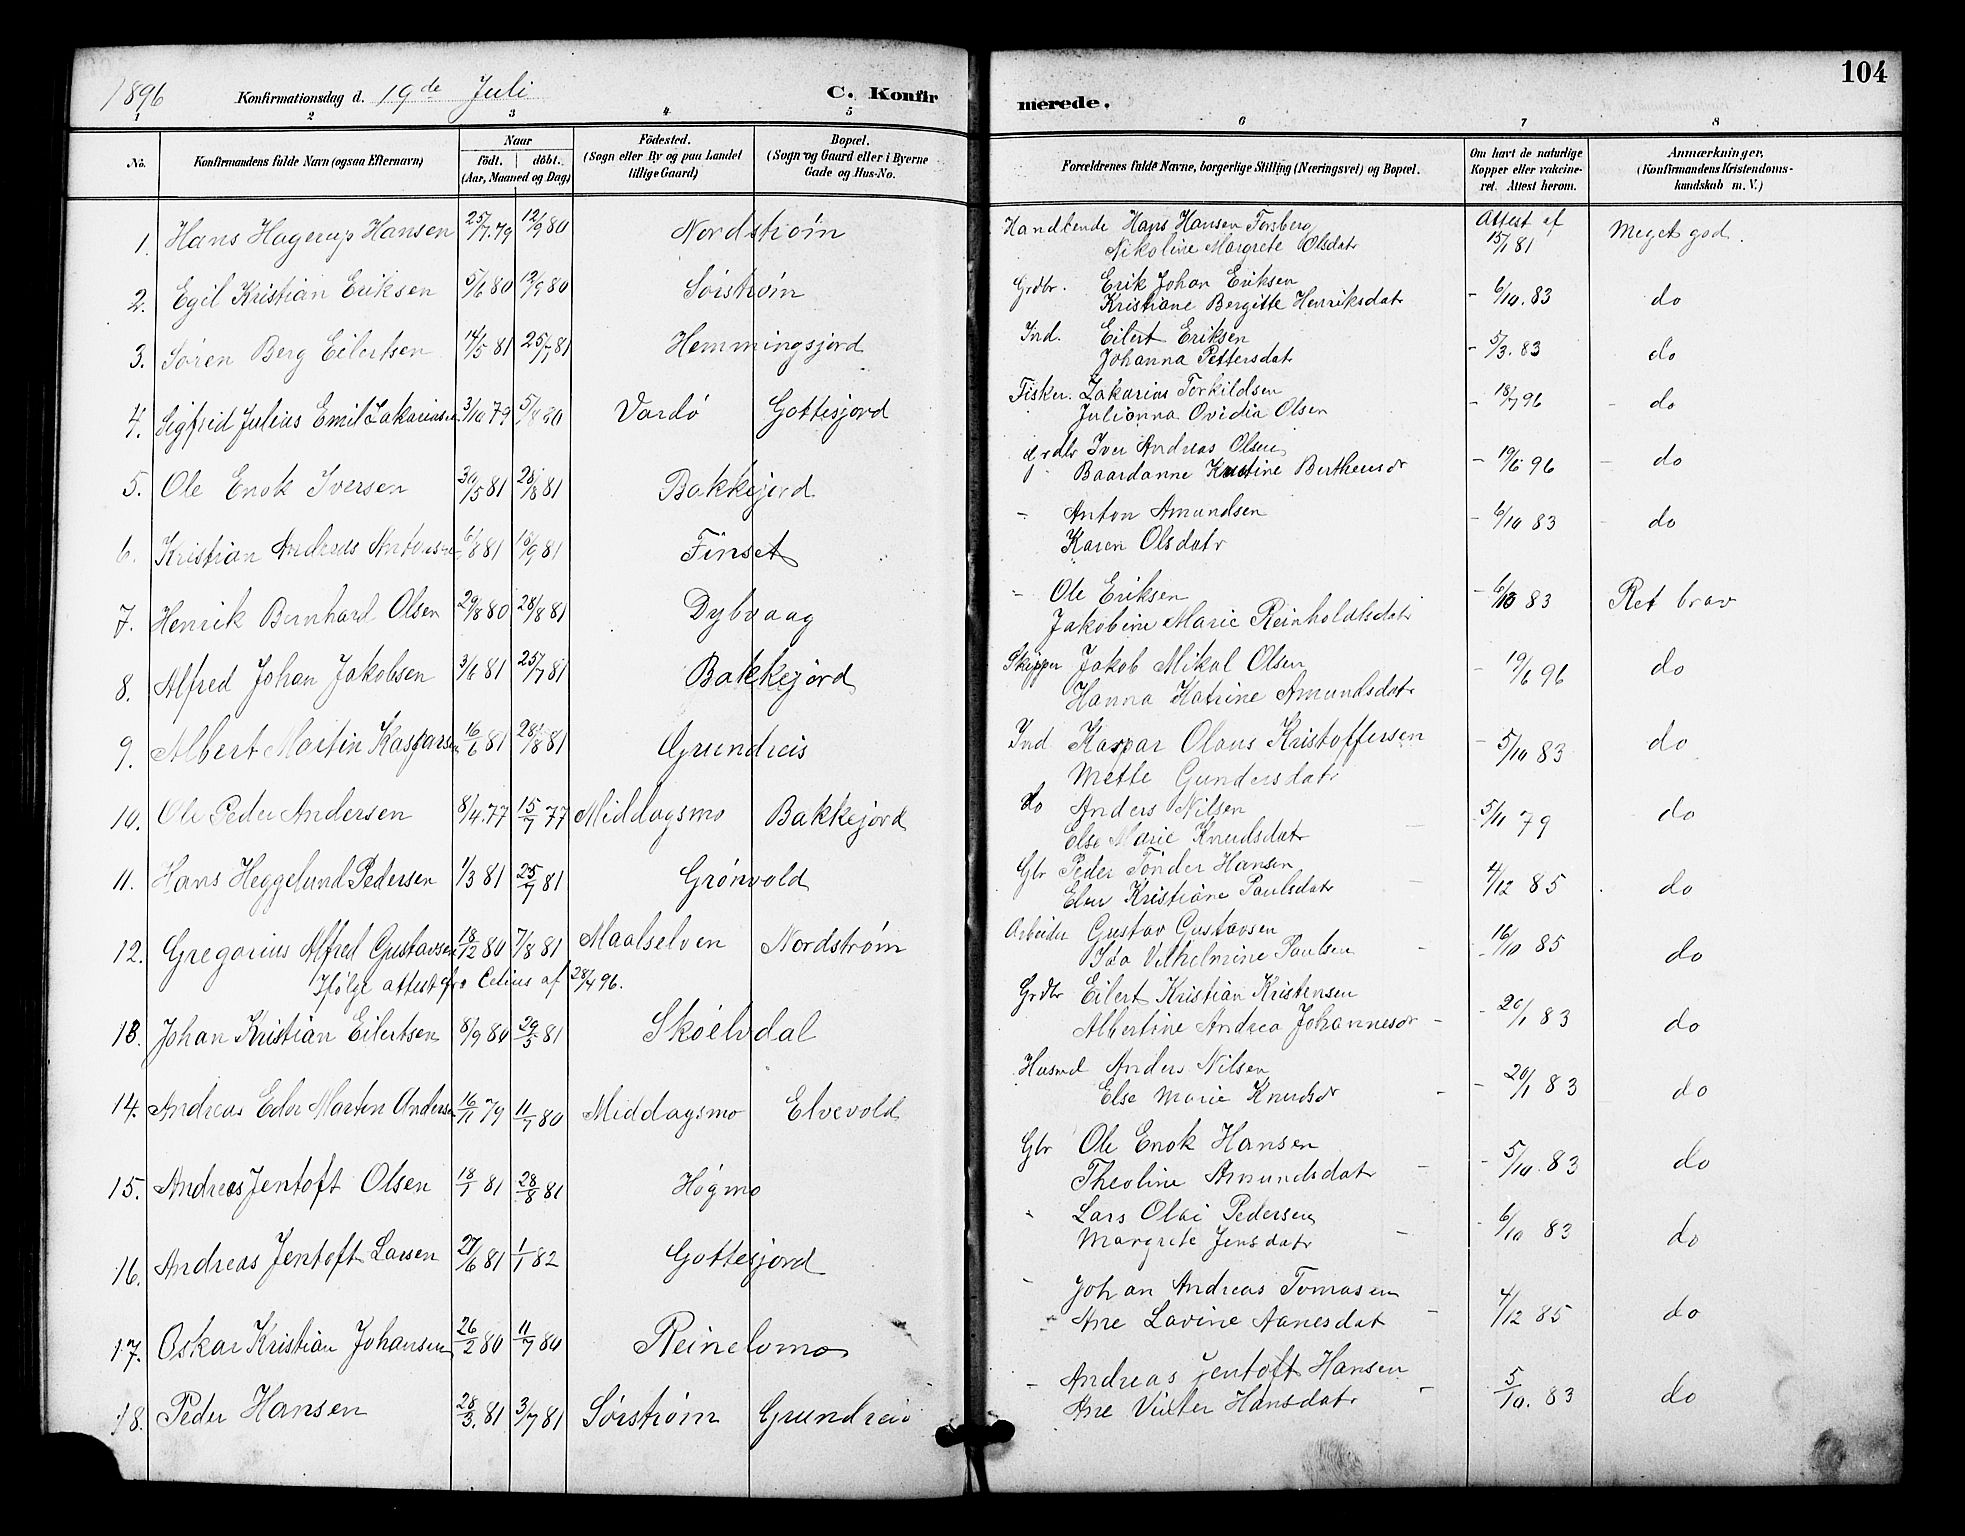 104
1896 Konfirmationsdag d. 19de Juli C. Konfirmerede.
1 2 3 4 5 6 7 8
No. Konfirmandens fulde Navn (ogsaa Efternavn) Naar födt. döbt. (Aar, Maaned og Dag) Födested. (Sogn eller By og paa Landet tillige Gaard) Bopæl. (Sogn og Gaard eller i Byerne Gade og Hus-No. Forældrenes fulde Navne, borgerlige Stilling (Næringsvei) og Bopæl. Om havt de naturlige Kopper eller vakcineret. Attest herom. Anmærkninger, (Konfirmandens Kristendomskundskab m. V.)
1. Hans Hagerup Hansen 25/7.79 12/9 80 Nordstrøm Hans Hansen Forsberg Attest af 15/1 81 Meget god.
Nikoline Margrete Olsdatr
2. Egil Kristian Eriksen 5/6 80 12/9 80 Sørstrøm Grdbr. Erik Johan Eriksen - 6/10. 83 do
Kristiane Bergitte Henriksdatr
3. Søren Berg Eilertsen 14/5 81 25/7 81 Hemmingsjord Ind. Eilert Eriksen - 5/3. 83 do
Johanna Pettersdatr
4. Sigfrid Julius Emil Zakariasen 3/10 79 5/4 80 Vardø Gottesjord Fisker. Zakarias Torkildsen - 18/7 96 - do
Julianna Ovidia Olsen
5. Ole Enok Iversen 30/5 81 28/8 81 Bakkejord grdbr Iver Andreas Olsen - 19/6 96 - do
Baardanne Kristine Berthensdr
6. Kristian Andreas Antonsen 6/8 81 18/9 81 Finset - Anton Amundsen - 6/10 83 - do
Karen Olsdatr
7. Henrik Bernhard Olsen 29/8 80 28/8 81 Dybvaag - Ole Eriksen - 6/10 83 Ret brav
Jakobine Marie Reinholdtsdatr
8. Alfred Johan Jakobsen 3/6 81 25/7 81 Bakkejord Skipper Jakob Mikal Olsen - 19/6 96 do
Hanna Katrine Amundsdatr
9. Albert Martin Kasparsen 16/6 81 28/8 81 Grundreis Ind Kaspar Olaus Kristoffersen - 5/10 83 do
Mette Gundersdatr
10. Ole Peder Andersen 8/4.77 15/7 77 Middagsmo Bakkejord do Anders Nilsen 5/11 79 do
Else Marie Knudsdatr
11. Hans Heggelund Pedersen 1/3 81 25/7 81 Grønvold Gbr Peder Tønder Hansen 4/12 85 do
Elen Kristiane Paulsdatr
12. Gregorius Alfred Gustavsen 18/12 80 7/8 81 Maalselven Nordstrøm Arbeider Gustav Gustavsen - 16/10 85 do
Ifølge attest fra Celius af 28/4 96. Ida Vilhelmine Paulsen
13. Johan Kristian Eilertsen 8/9 80 29/5 81 Skoelvdal Grdbr Eilert Kristian Kristensen - 20/1 83 do
Albertine Andrea Johannesdr
14. Andreas Edor Marten Andersen 16/11 79 11/7 80 Middagsmo Elvevold Husmd Anders Nilsen - 20/1 83 do
Else Marie Knudsdr
15. Andreas Jentoft Olsen 18/1 81 28/8 81 Høgmo Gbr Ole Enok Hansen - 5/10. 83 do
Theoline Amundsdatr
16. Andreas Jentoft Larsen 27/6 81 1/1 82 Gottesjord " Lars Olai Pedersen - 6/10 83 do
Margrete Jensdatr
17. Oskar Kristian Johansen 26/2 80 11/7 80 Reinelvmo - Johan Andreas Tomasen 4/12 85 do
Ane Lavine Aanesdat
18. Peder Hansen 28/3. 81 3/7 81 Sørstrøm Grundreis - Andreas Jentoft Hansen 5/10. 83 do
Ane Vinter Hansdatr